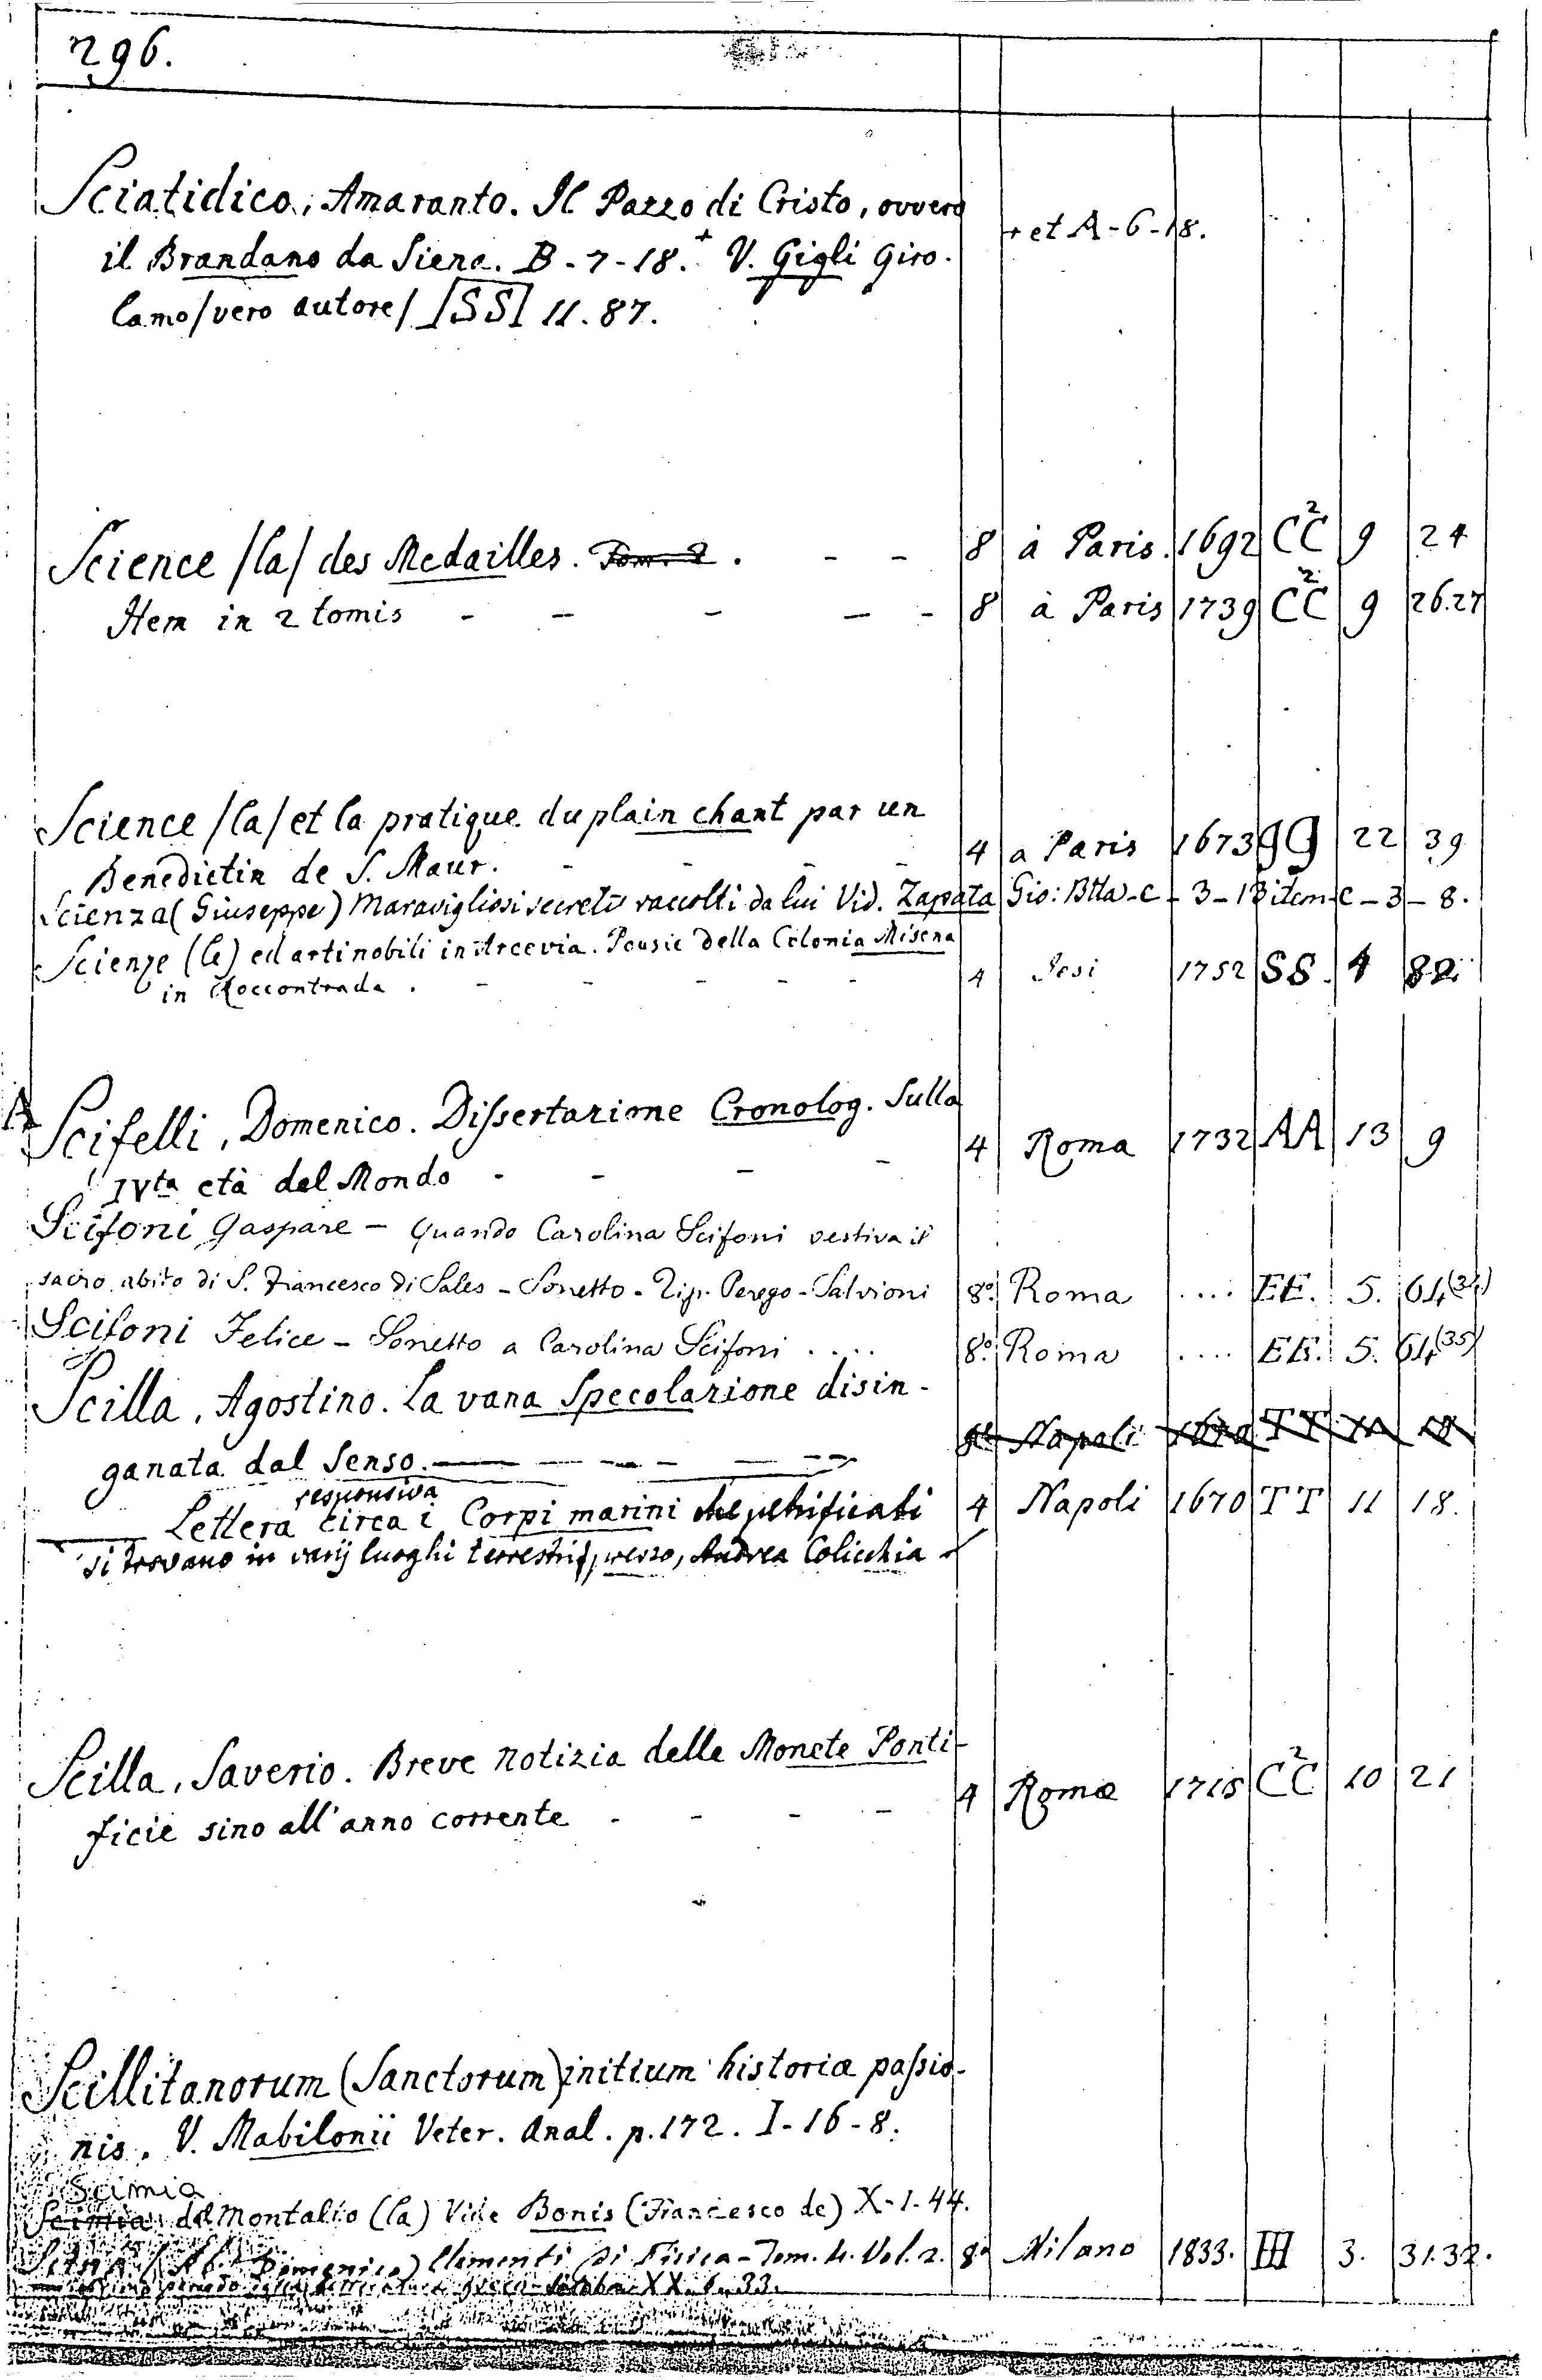 296.
Sciatidico, Amaranto. Il Pazzo di Cristo, ovvero
il Brandano da Siena. B-7-18.+ V. Gigli Giro- + et A-6-18.
lamo /vero autore/ [SS] 11.87.
Science /la/ des Medailles. Tom. 2. - - 8 à Paris. 1692 CC2 9 24
Item in 2 tomis - - - - - 8 à Paris 1739 CC2 9 26.27
Science /la/ et la pratique du plain chant par un
Benedictin de S. Maur. - - - - 4 a Paris 1673 gg 22 39
Scienza (Giuseppe) Maravigliosi secreti raccolti da lui Vid. Zapata Gio: Btta - C - 3 - 13 item C - 3 - 8.
Scienze (le) ed arti nobili in Arcevia. Poesie della Colonia Misena
in Roccontrada. - - - - 4 Jesi 1752 SS. 4 82.
Scifelli, Domenico. Dissertazione Cronolog. Sulla
IVta età del Mondo - - - - 4 Roma 1732 AA 13 9
Scifoni Gaspare - Quando Carolina Scifoni vestiva il
sacro abito di S. Francesco di Sales - Sonetto - Tip. Perego-Salvioni 8º Roma .... EE. 5. 64(34)
Scifoni Felice - Sonetto a Carolina Scifoni .... 8º Roma .... EE. 5. 64(35)
Scilla, Agostino. La vana Specolazione disin-
ganata dal Senso. Napoli 1670 TT 11 18
responsiva
Lettera circa i Corpi marini che petrificati 4 Napoli 1670 TT 11 18.
si trovano in varij luoghi terrestri, presso, Andrea Colicchia
Scilla, Saverio. Breve notizia delle Monete Ponti-
ficie sino all'anno corrente - - - - 4 Roma 1715 CC2 10 21
Scillitanorum (Sanctorum) initium historiæ passio-
nis. V. Mabilonii Veter. Anal. p.172. I-16-8.
Scimia
Scimia del Montalto (la) Vide Bonis (Francesco de) X-1-44.
Scinà (Ab. Domenico) Elementi di Fisica - Tom. 4. Vol. 2. 8º Milano 1833. III 3. 31.32.
periodo della letteratura greca XX. 6. 33.